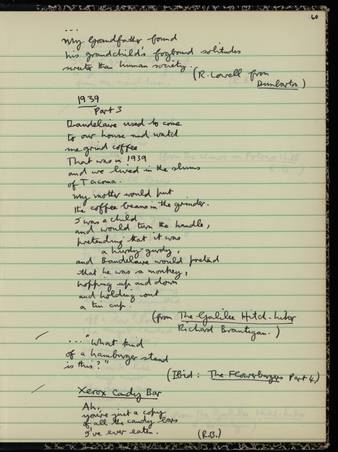 60
...
My Grandfather found
his grandchild's fogbound solitudes
sweeter than human society.
(R. Lowell from
Dunbarton)
1939
Part 3
Baudelaire used to come
to our house and watch
me grind coffee
That was in 1939
and we lived in the slums
of Tacoma.
My mother would put
the coffee beans in the grinder.
I was a child
and would turn the handle,
pretending that it was
a hurdy-gurdy,
and Baudelaire would pretend
that he was a monkey,
hopping up and down
and holding out
a tin cup.
(from The Galilee Hitch-hiker
Richard Brautigan.)
... "What kind
of a hamburger stand
is this?"
(Ibid: The Flowerburgers Part 4.)
Xerox Candy Bar
Ah,
you're just a copy
of all the candy bars
I've ever eaten.
(R.B.)